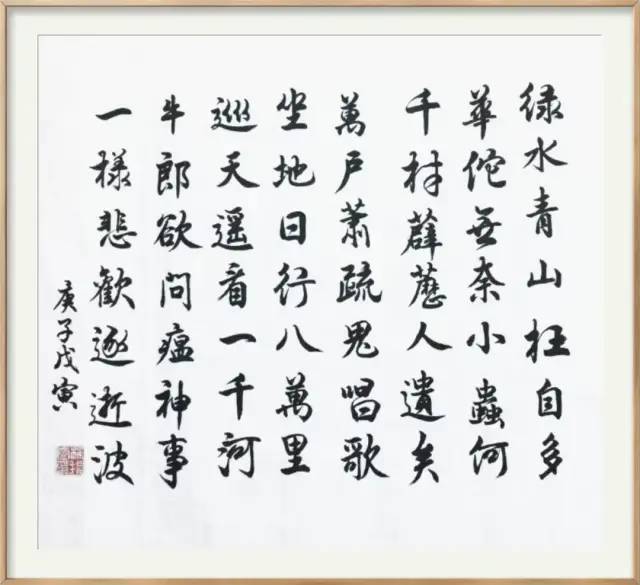 绿水青山枉自多
華佗無奈小蟲何
千村薜藶人遺矢
萬戶蕭疏鬼唱歌
坐地日行八萬里
巡天遥看一千河
牛郎欲問瘟神事
一樣悲歡逐逝波
庚子戊寅